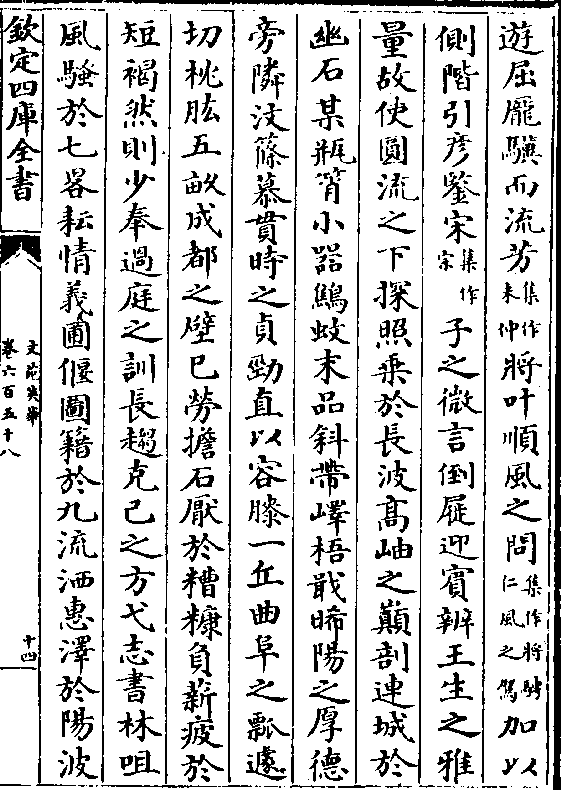 遊屈龎驥而流芳集作朱仲將叶順風之問集作將騁仁風之駕加以
側階引彦鑒宋集作宗子之微言倒屣迎賓辨王生之雅
量故使圓流之下探照乗於長波髙岫之巔剖連城於
幽石某瓶筲小器鷦蚊末品斜帶嶧梧戢晞陽之厚德
旁隣汶篠慕貫時之貞勁直以容膝一丘曲阜之瓢遽
切枕肱五畝成都之壁已勞擔石厭於糟糠負薪疲於
短褐然則少奉過庭之訓長趨克己之方弋志書林咀
風騷於七畧耘情義圃偃圖籍於九流洒惠澤於陽波
欽定四庫全書
文苑英華
卷六百五十八
十四